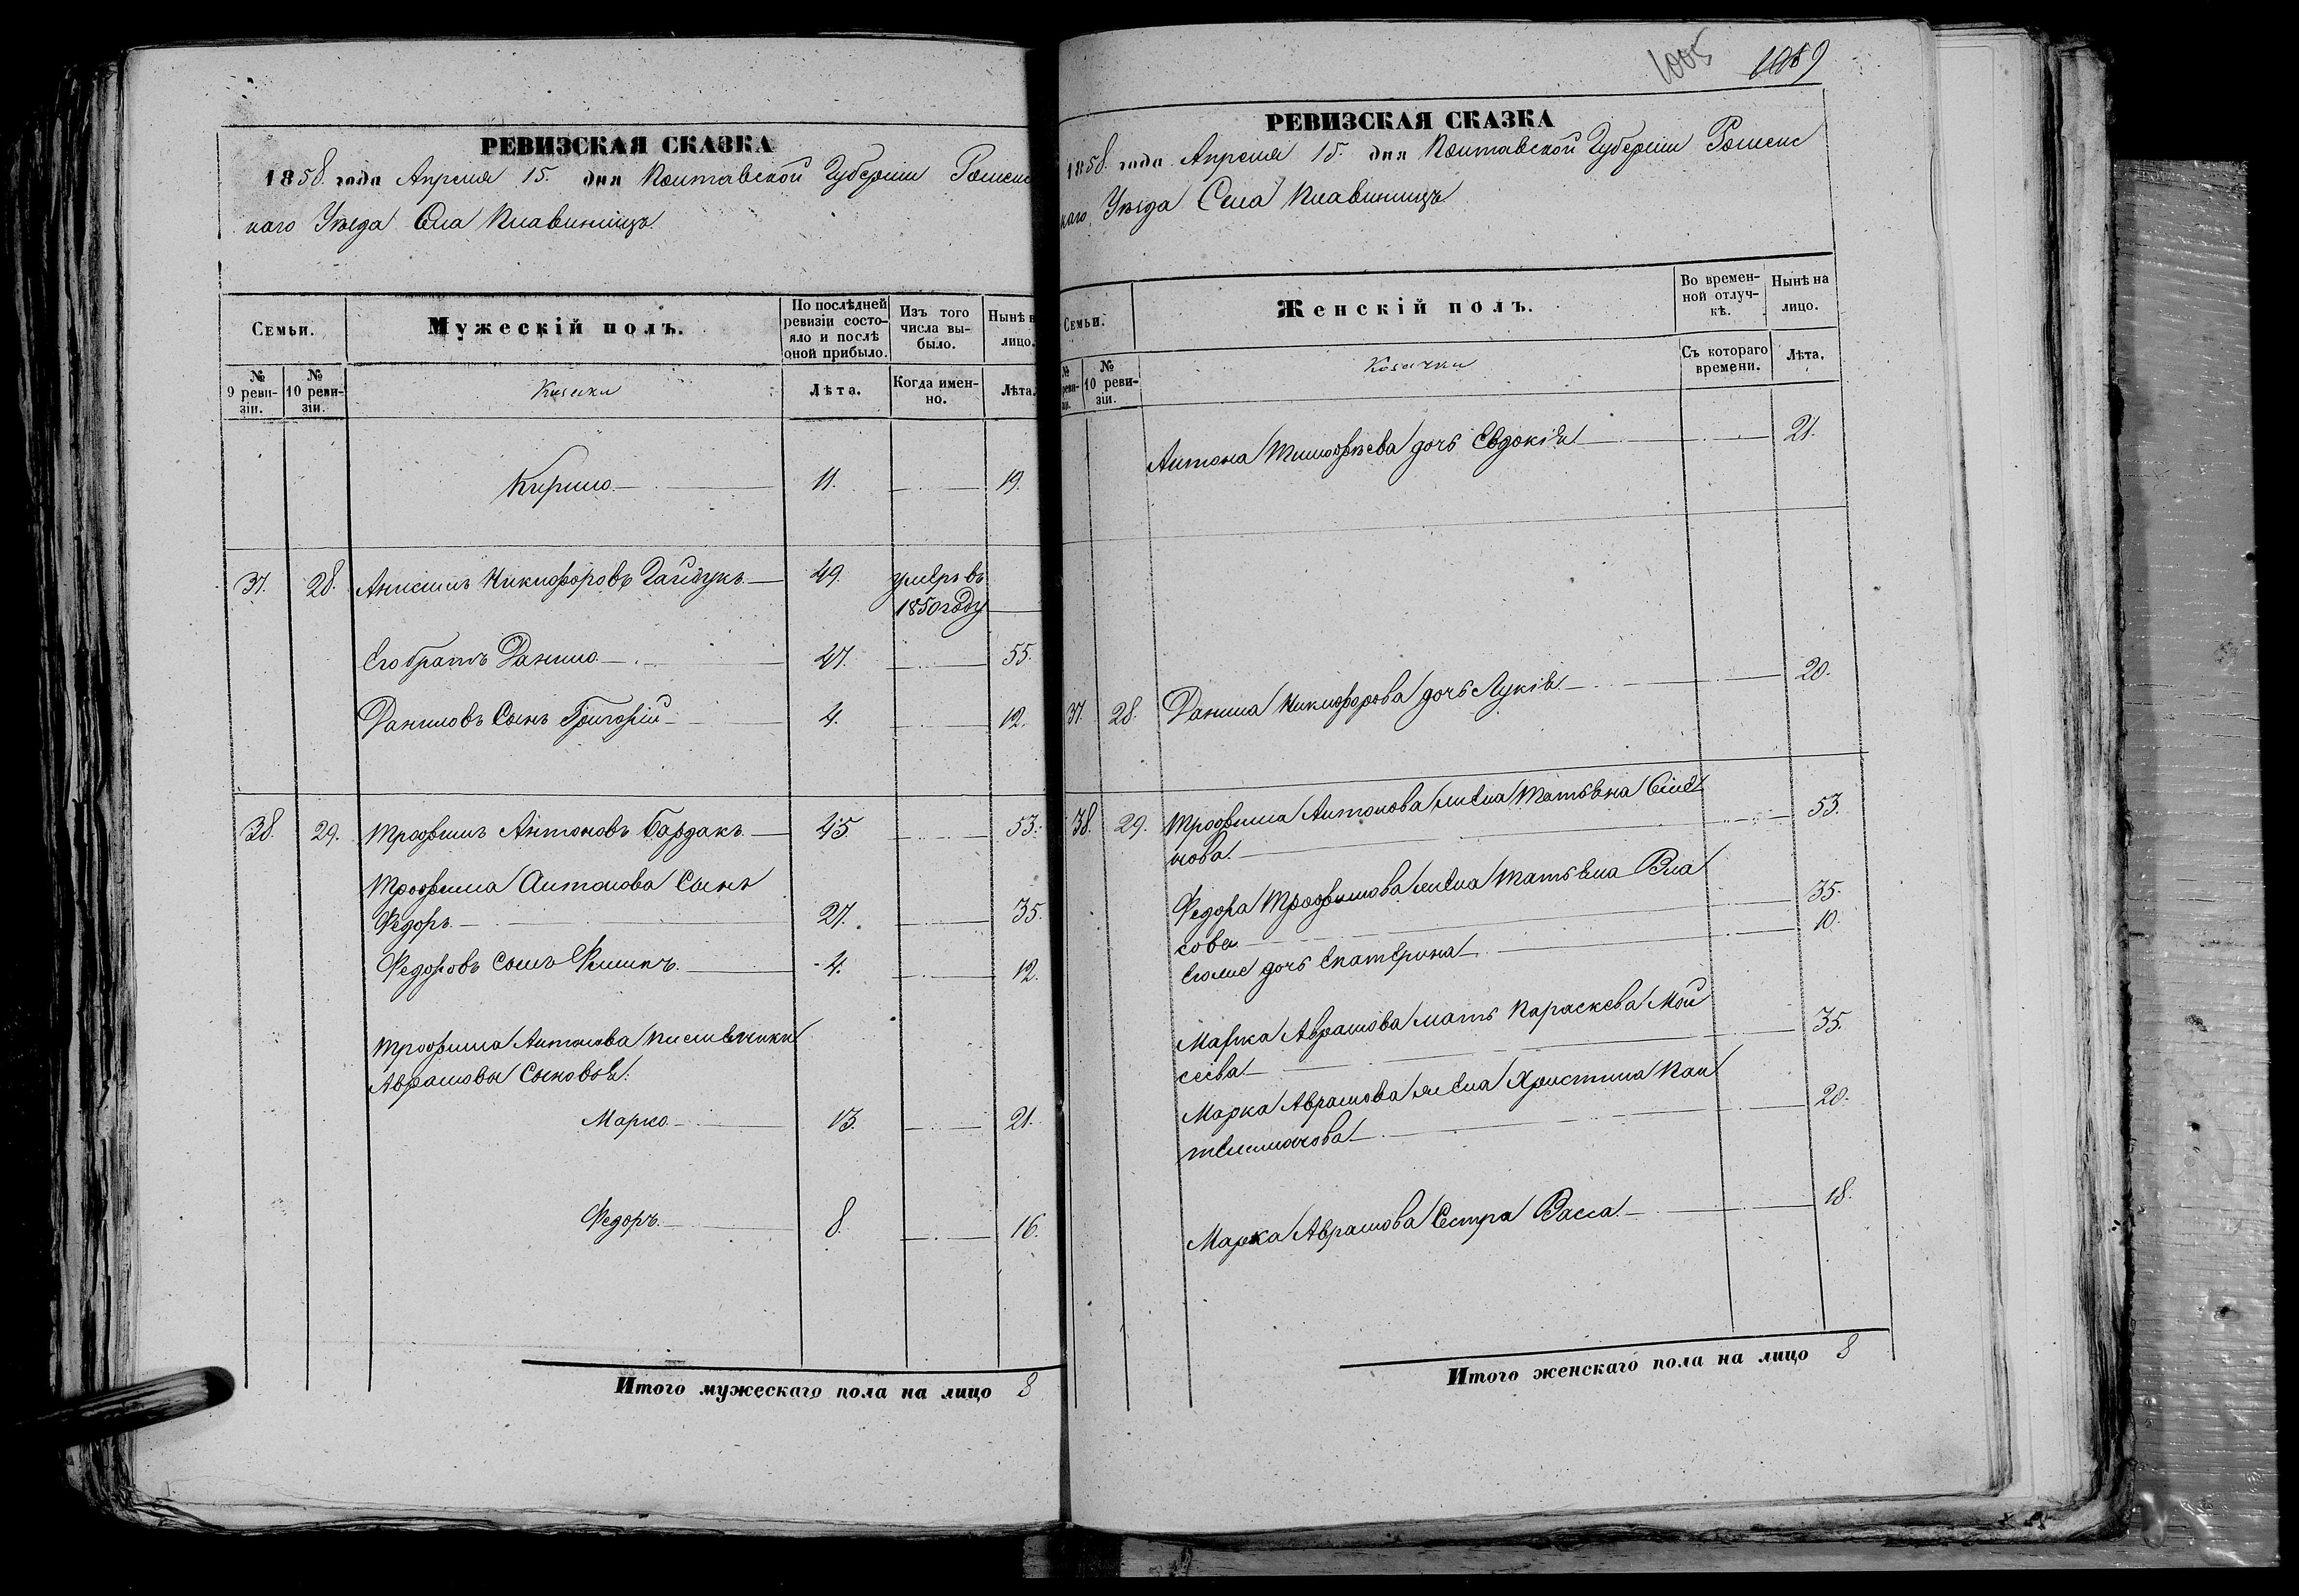 РЕВИЗСКАЯ СКАЗКА
1858. года Апреля 15. дня Полтавской Губерніи Роменс
каго Уѣзда Села Плавинищъ
Семьи.
Мужескій полъ.
По послѣдней ревизіи состояло и послѣ оной прибыло.
Изъ того числа выбыло.
Нынѣ н
лицо.
№ 9 ревизіи.
№ 10 ревизіи.
Козаки
Лѣта.
Когда именно.
Лѣта.
Кирило 11. 19.
37. 28. Анисимъ Никифоровъ Гайдукъ 49. умеръ въ
1850 году
Его братъ Данило 47. 55.
Даниловъ Сынъ Григорій 4. 12.
38. 29. Трофимъ Антоновъ Бардакъ 45. 53.
Трофима Антонова Сынъ
Федоръ 27. 35.
Федоровъ Сынъ Филипъ 4. 12.
Трофима Антонова племенники
Аврамовы Сыновья:
Марко 13. 21.
Федоръ 8. 16.
Итого мужескаго пола на лицо 8
1005 1089
РЕВИЗСКАЯ СКАЗКА
1858. года Апреля 15. дня Полтавской Губерніи Роменс
каго Уѣзда Села Плавинищъ
Семьи.
Женскій полъ.
Во временной отлучкѣ.
Нынѣ на лицо.
№ реви-
зіи.
№ 10 ревизіи.
Козачки
Съ котораго времени.
Лѣта.
Антона Тимофѣева дочь Евдокія 21.
37. 28. Данила Никифорова дочь Лукія 20.
38. 29. Трофима Антонова жена Татьяна
нова 53.
Федора Трофимова жена Татьяна Вла
сова 35.
Егоже дочь Екатерина 10.
Марка Аврамова мать Параскева Мой
сеева 35.
Марка Аврамова жена Христина Пан
телимонова 20.
Марка Аврамова Сестра Васса 18.
Итого женскаго пола на лицо 8